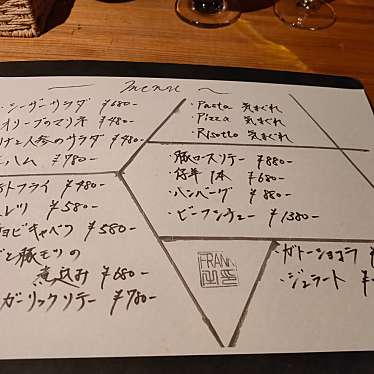 menu
・シーザーサラダ ¥680-
オリーブのマリネ ¥480-
と人参のサラダ ¥480-
ハム ¥780-
トフライ ¥480-
レツ ¥580-
ョビキャベツ ¥580-
と豚モツの
煮込み ¥680-
ガーリックソテー ¥780-
・Pasta 気まぐれ
・Pizza 気まぐれ
・Risotto 気まぐれ
・豚ロースソテー ¥880-
・仔羊 1本 ¥680-
・ハンバーグ ¥880-
・ビーフシチュー ¥1380-
FRANK
・ガトーショコラ ¥
・ジェラート ¥